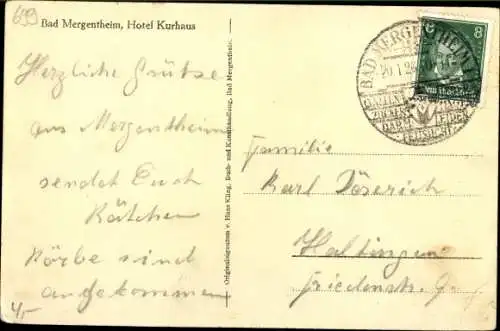 699
Bad Mergentheim, Hotel Kurhaus
Herzliche Grüße
aus Mergentheim
sendet Euch
Kätchen
Körbe sind
angekommen
4,-
Originalsignatum v. Hans Kling, Buch- und Kunsthandlung, Bad Mergentheim.
BAD MERGENTHEIM
8
Familie
Karl Döserich
Haltingen
Friedenstr.